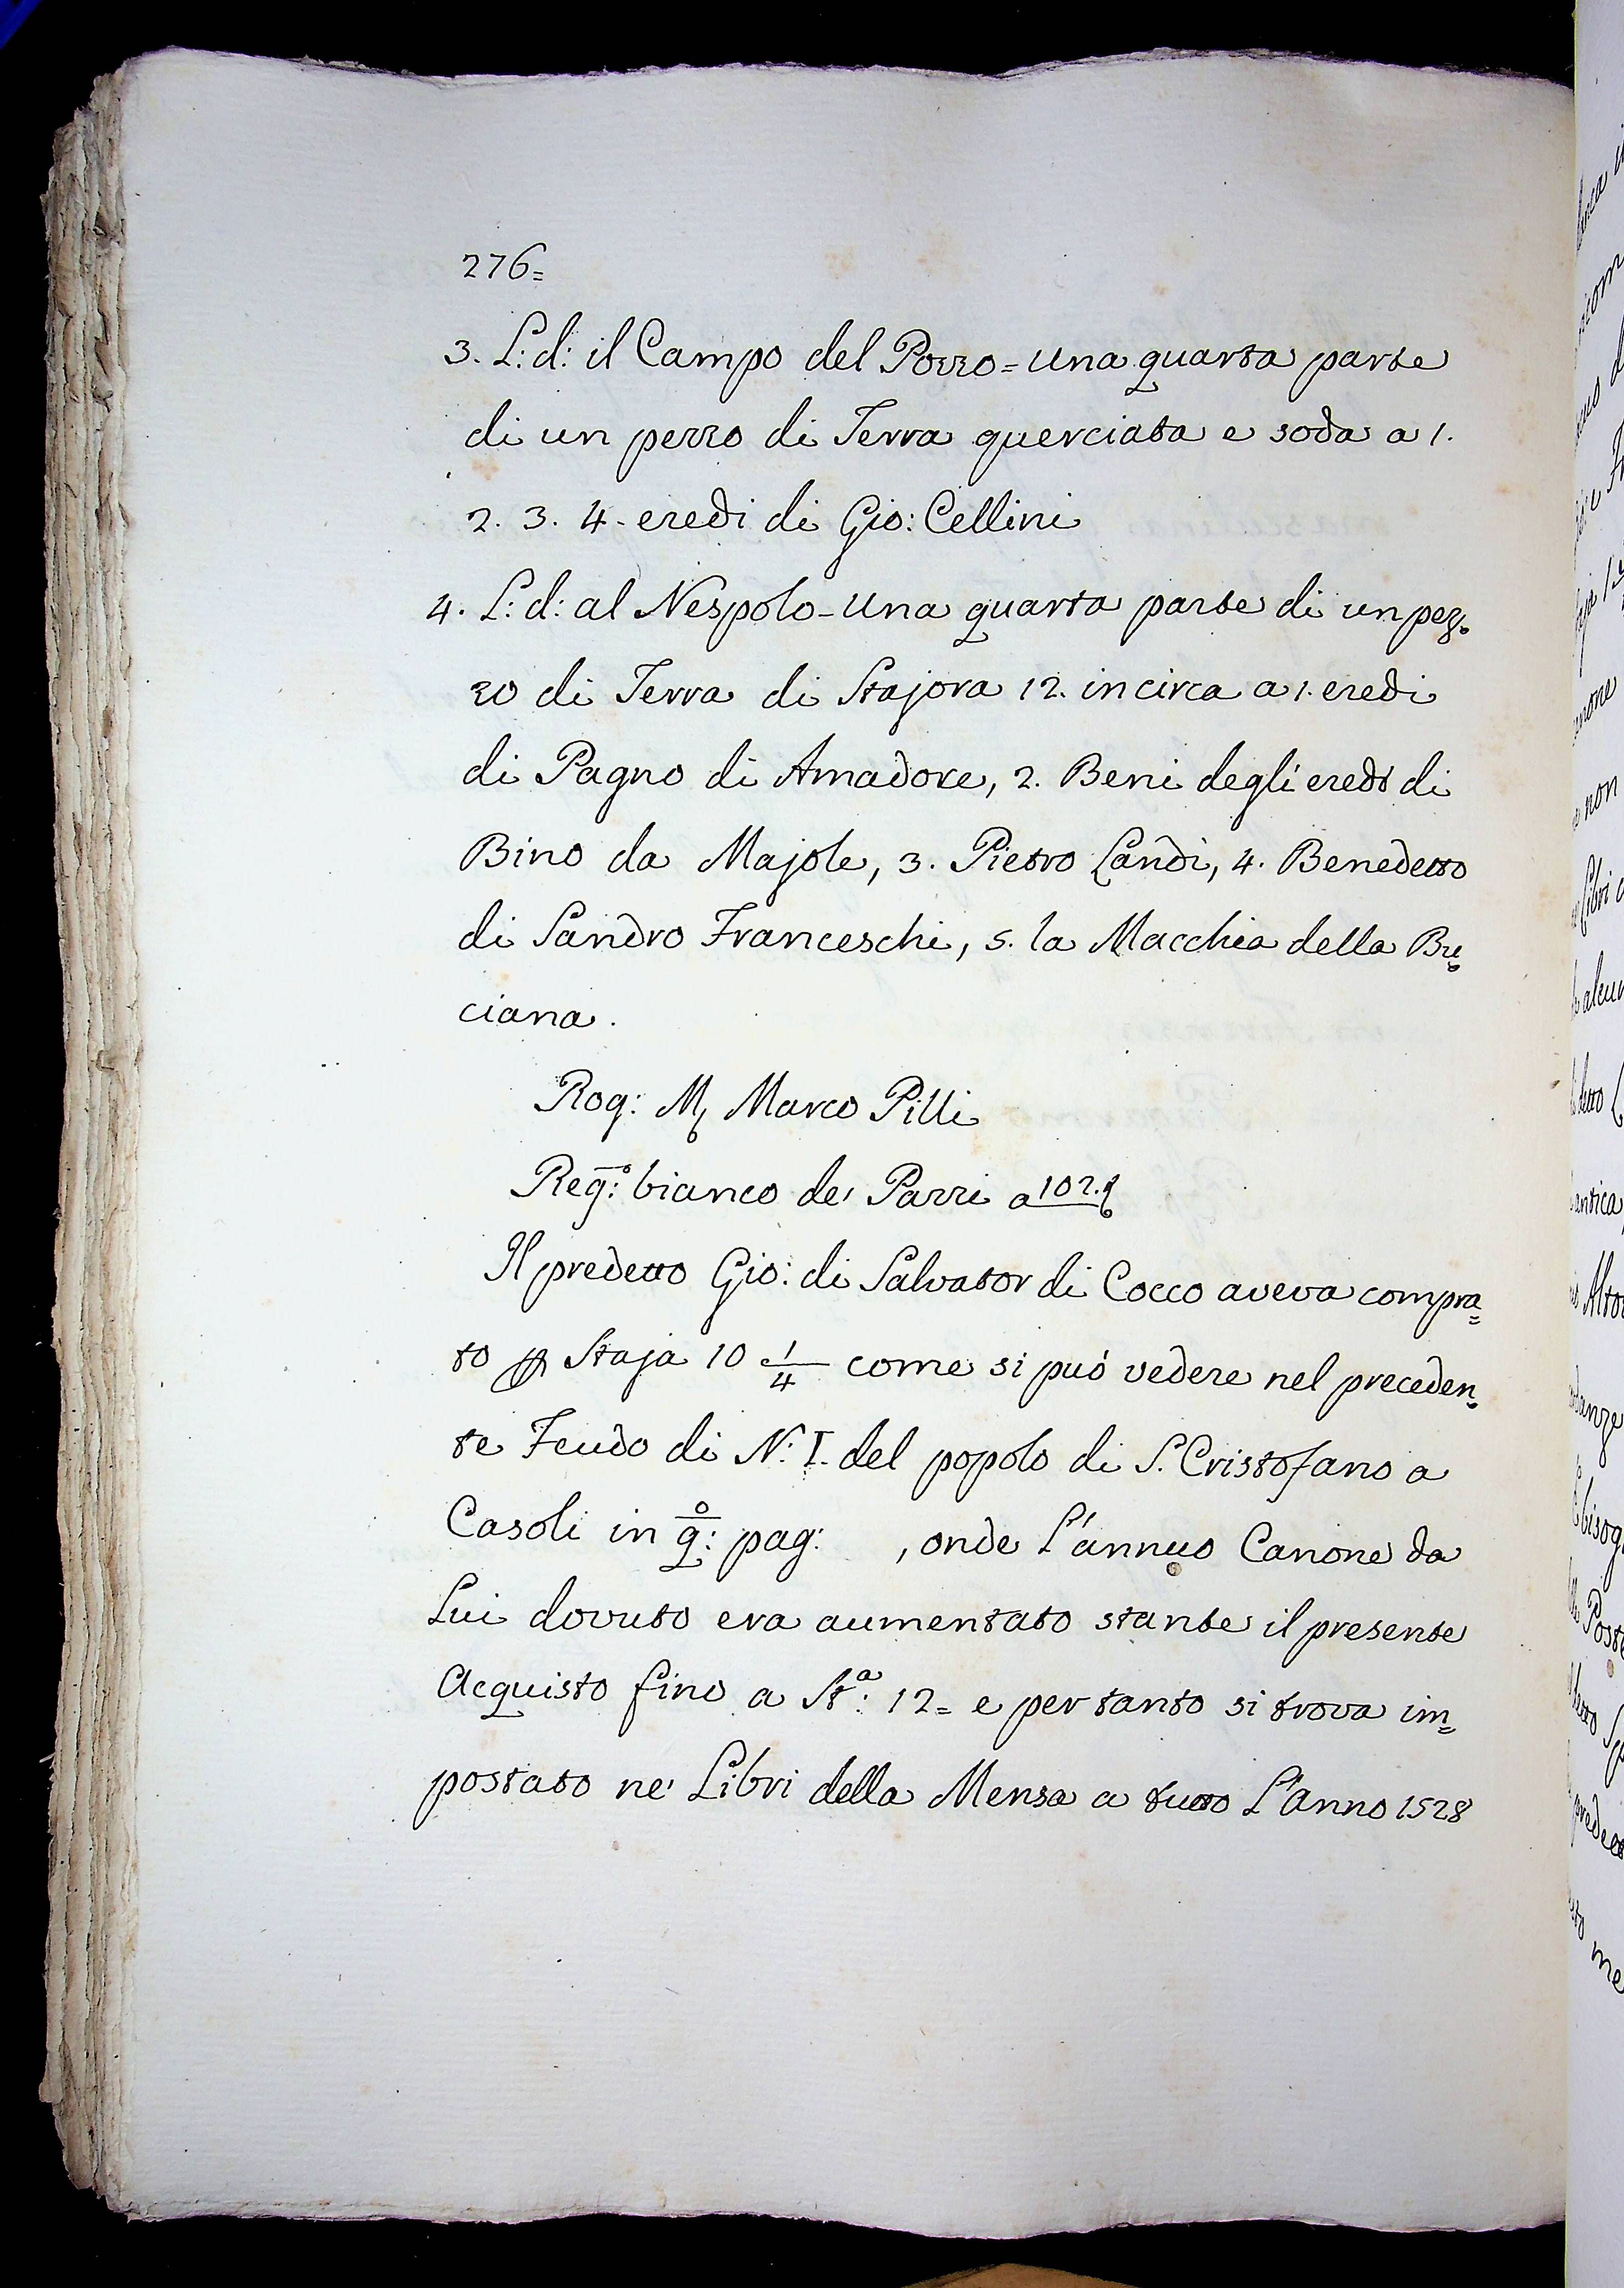 276=
3. L: d: il Campo del Pozzo = una quarta parte
di un pezzo di Terra querciata e soda a 1.
2. 3. 4. eredi di Gio: Cellini
4. L: d: al Nespolo - Una quarta parte di un pez=
zo di Terra di Stajora 12. in circa a 1. eredi
di Pagno di Amadore, 2. Beni degli eredi di
Bino da Majole, 3. Pietro Landi, 4. Benedetto
di Sandro Franceschi, 5. la Macchia della Bru=
ciana.
Rog: M. Marco Pilli
Reg:º bianco de' Pazzi a 102.
Il predetto Gio: di Salvator di Cocco aveva compra=
to p Staja 10 1/4 come si può vedere nel preceden=
te Feudo di N: I. del popolo di S. Cristofano a
Casoli in q:º pag: , onde l'annuo Canone da
Lui dovuto era aumentato stante il presente
Acquisto fino a St:ª 12 = e per tanto si trova im=
postato ne' Libri della Mensa a tutto L'Anno 1528